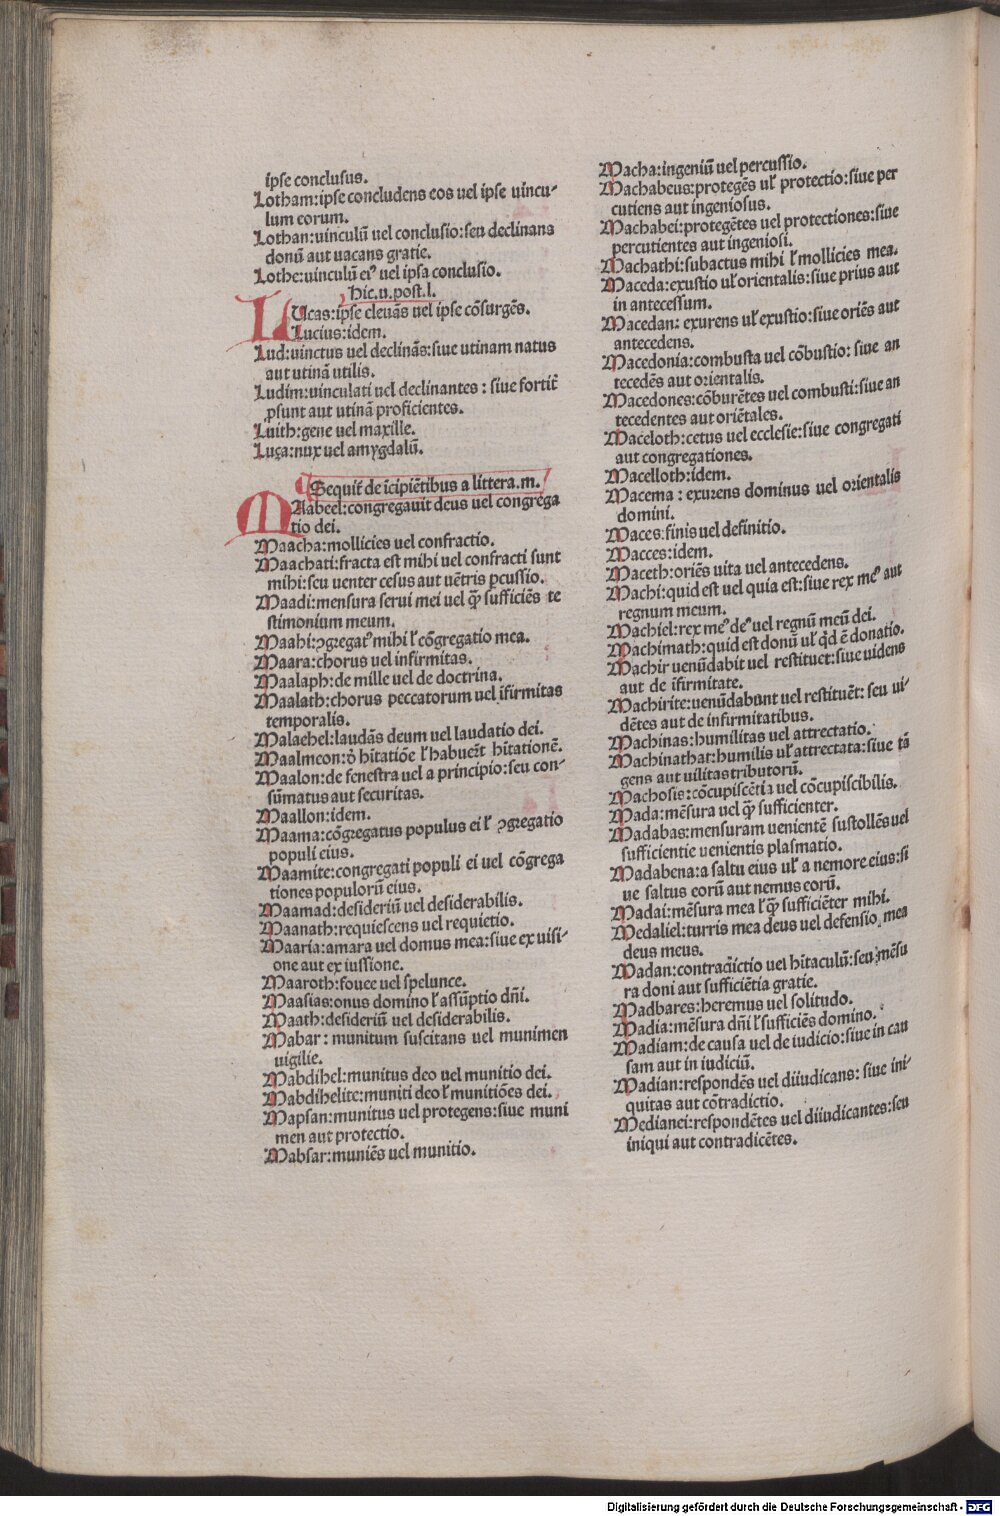 ipse conclusus.
Lotham:ipse concludens eos uel ipse uincu-
lum eorum.
Lothan:uinculũ uel conclusio:seu declinans
donũ aut uacans gratie.
Lothe:uinculũ ei⁹ uel ipsa conclusio.
Hic.u.post.l.
LUcas:ipse eleuãs uel ipse cõsurgẽs.
Lucius:idem.
Lud:uinctus uel declinãs:siue utinam natus
aut utinã utilis.
Ludim:uinculati uel declinantes : siue fortit̃
ꝓsunt aut utinã proficientes.
Luith:gene uel maxille.
Luça:nux uel amygdalũ.
¶ Sequit̃ de ĩcipiẽtibus a littera.m.
MAabeel:congregauit deus uel congrega
tio dei.
Maacha:mollicies uel confractio.
Maachati:fracta est mihi uel confracti sunt
mihi:seu uenter cesus aut uẽtris ꝑcussio.
Maadi:mensura serui mei uel q̃ sufficiẽs te
stimonium meum.
Maahi:ꝯgregat⁹ mihi ł cõgregatio mea.
Maara:chorus uel infirmitas.
Maalaph:de mille uel de doctrina.
Maalath:chorus peccatorum uel ĩfirmitas
temporalis.
Malaehel:laudãs deum uel laudatio dei.
Maalmeon:õ h̃itatiõe ł habuer̃t h̃itationẽ.
Maalon:de fenestra uel a principio:seu con-
sũmatus aut securitas.
Maallon:idem.
Maama:cõgregatus populus ei ł ꝯgregatio
populi eius.
Maamite:congregati populi ei uel cõgrega
tiones populorũ eius.
Maamad:desideriũ uel desiderabilis.
Maanath:requiescens uel requietio.
Maaria:amara uel domus mea:siue ex uisi-
one aut ex iussione.
Maaroth:fouee uel spelunce.
Maasias:onus domino ł assũptio dñi.
Maath:desideriũ uel desiderabilis.
Mabar : munitum suscitans uel munimen
uigilie.
Mabdihel:munitus deo uel munitio dei.
Mabdihelite:muniti deo ł munitiões dei.
Mapsan:munitus uel protegens:siue muni
men aut protectio.
Mabsar:muniẽs uel munitio.
Macha:ingeniũ uel percussio.
Machabeus:protegẽs uł protectio:siue per
cutiens aut ingeniosus.
Machabei:protegẽtes uel protectiones:siue
percutientes aut ingeniosi.
Machathi:subactus mihi ł mollicies mea.
Maceda:exustio uł orientalis:siue prius aut
in antecessum.
Macedan: exurens uł exustio:siue oriẽs aut
antecedens.
Macedonia:combusta uel cõbustio: siue an
tecedẽs aut orientalis.
Macedones:cõburẽtes uel combusti:siue an
tecedentes aut oriẽtales.
Maceloth:cetus uel ecclesie:siue congregati
aut congregationes.
Macelloth:idem.
Macema : exurens dominus uel orientalis
domini.
Maces:finis uel definitio.
Macces:idem.
Maceth:oriẽs uita uel antecedens.
Machi:quid est uel quia est:siue rex me⁹ aut
regnum meum.
Machiel:rex me⁹ de⁹ uel regnũ meũ dei.
Machimath:quid est donũ uł q̃d ẽ donatio.
Machir uenũdabit uel restituet:siue uidens
aut de ĩfirmitate.
Machirite:uenũdabunt uel restituẽt: seu ui-
dẽtes aut de infirmitatibus.
Machinas:humilitas uel attrectatio.
Machinathat:humilis uł attrectata:siue tã
gens aut uilitas tributorũ.
Machosis:cõcupiscẽtia uel cõcupiscibilis.
Mada:mẽsura uel q̃ sufficienter.
Madabas:mensuram uenientẽ sustollẽs uel
sufficientie uenientis plasmatio.
Madabena:a saltu eius uł a nemore eius:si
ue saltus eorũ aut nemus eorũ.
Madai:mẽsura mea ł q̃ sufficiẽter mihi.
Medaliel:turris mea deus uel defensio mea
deus meus.
Madan:contradictio uel h̃itaculũ:seu mẽsu
ra doni aut sufficiẽtia gratie.
Madbares:heremus uel solitudo.
Madia:mẽsura dñi ł sufficiẽs domino.
Madiam:de causa uel de iudicio:siue in cau
sam aut in iudiciũ.
Madian:respondẽs uel diiudicans: siue ini-
quitas aut cõtradictio.
Medianei:respondẽtes uel diiudicantes:seu
iniqui aut contradicẽtes.
Digitalisierung gefördert durch die Deutsche Forschungsgemeinschaft - DFG